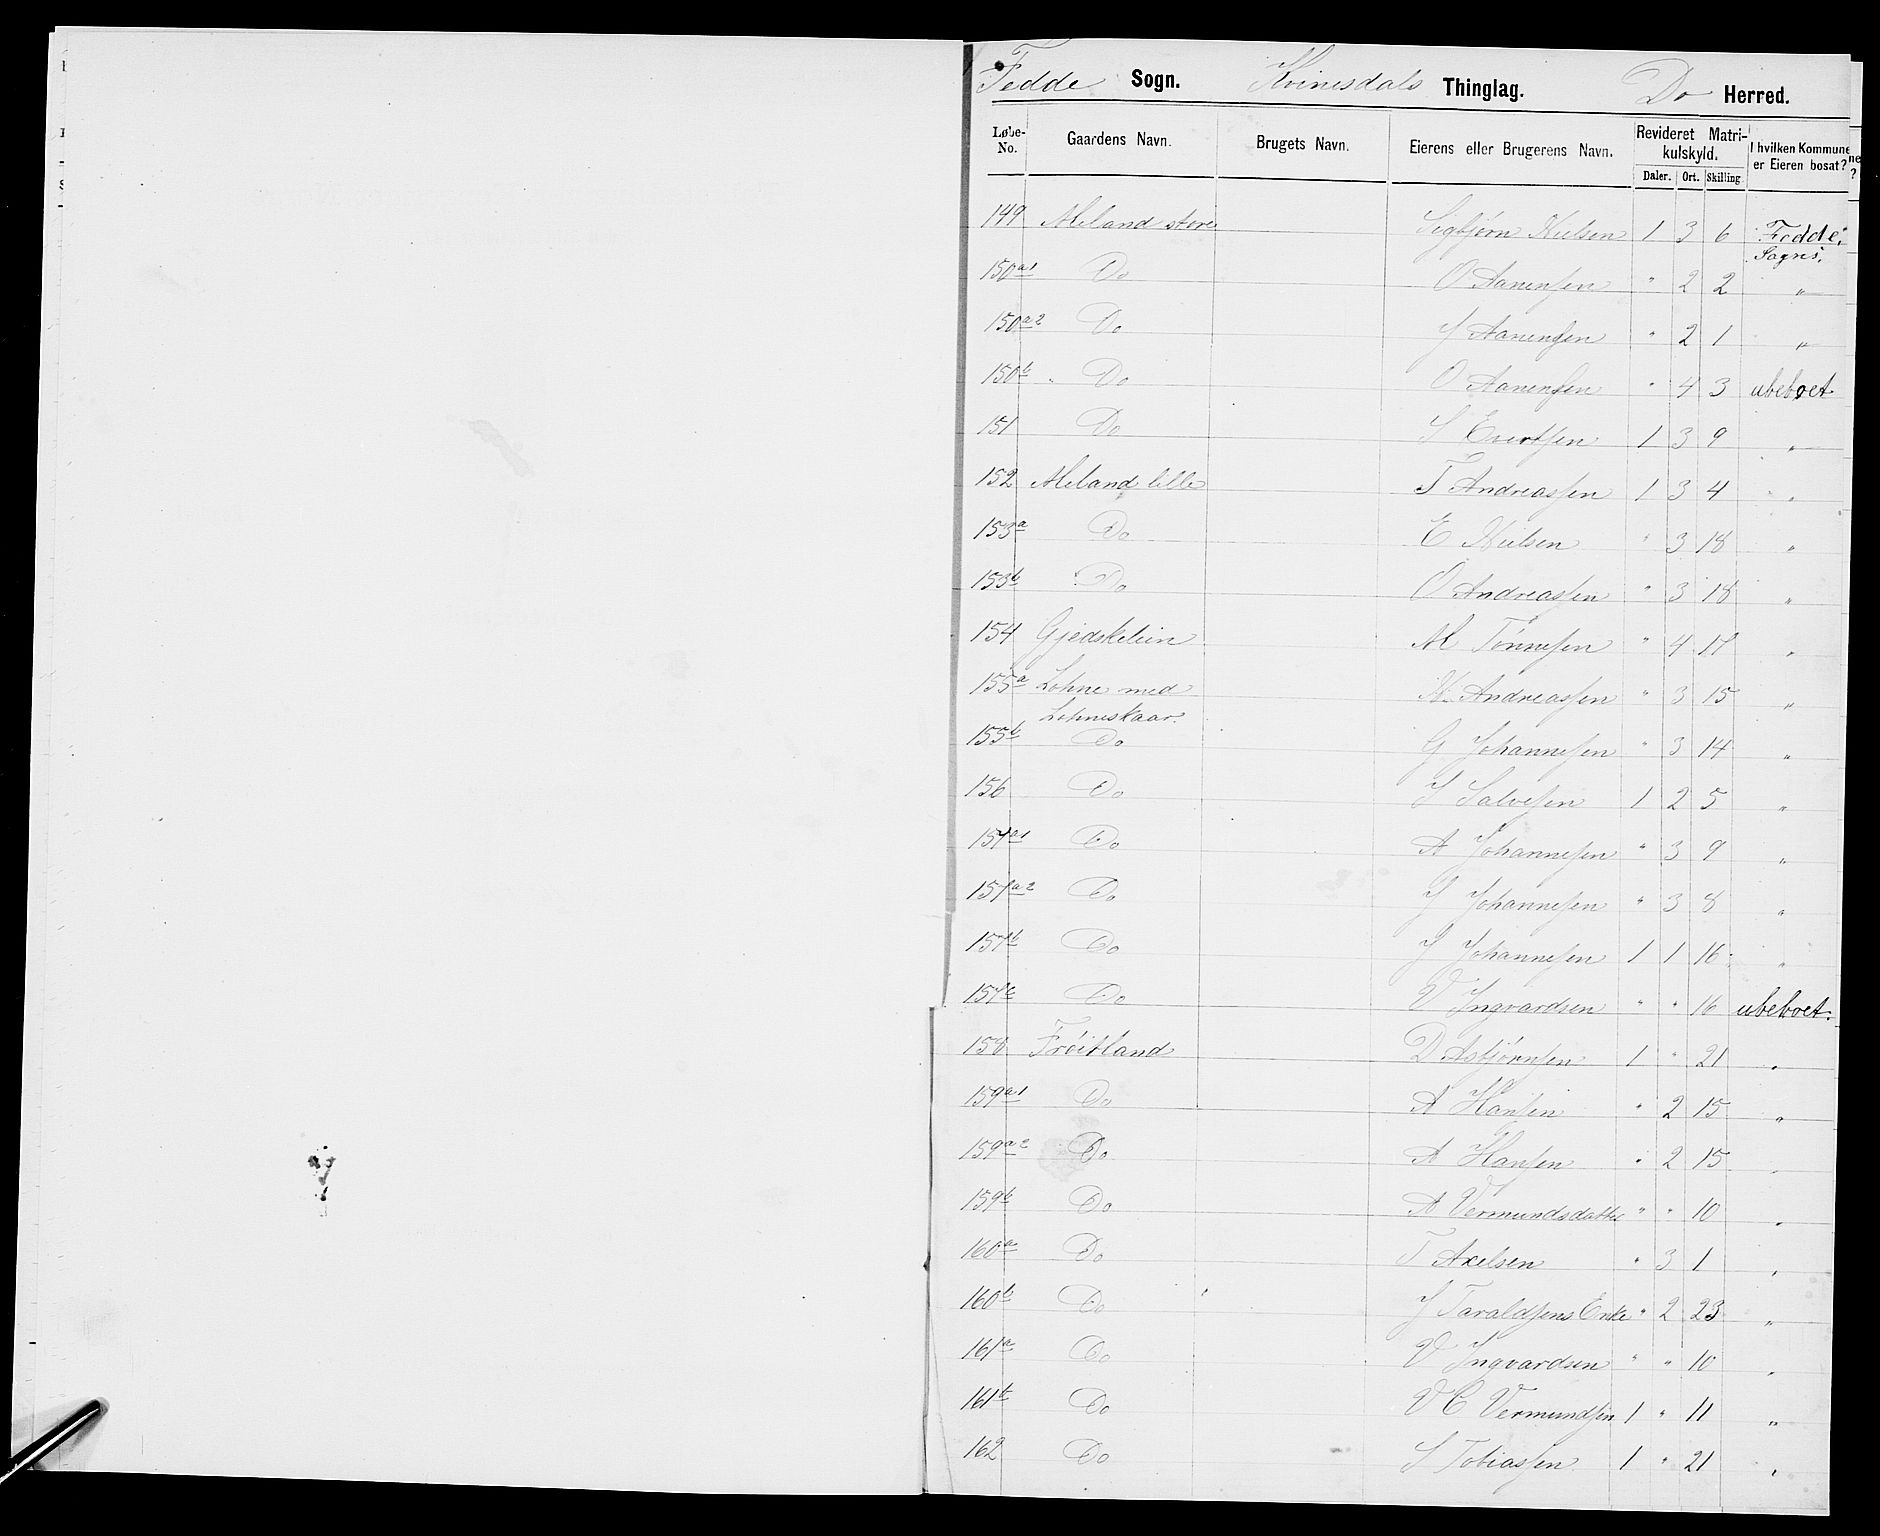 Fedde Sogn. Kvinesdals Thinglag. Do Herred.
Løbe-No. Gaardens Navn. Brugets Navn. Eierens eller Brugerens Navn. Revideret Matrikulskyld. I hvilken Kommune er Eieren bosat?
Daler. Ort. Skilling
149 Meland store Sigbjørn Nielsen 1 3 6 Fedde
Sogns.
150a1 Do O Aanensen " 2 2 "
150a2 Do J Aanensen " 2 1 "
150b Do O Aanensen " 4 3 ubeboet
151 Do S Evertsen 1 3 9 "
152 Meland lille T Andreassen 1 3 4 "
153a Do E Nielsen " 3 18 "
153b Do O Andreassen " 3 18 "
154 Gjedskelein M Tønnesen " 4 17 "
155a Lohne med N. Andreassen " 3 15 "
Lohneskaar.
155b Do G Johannesen " 3 14 "
156 Do J Salvesen 1 2 5 "
157a1 Do A Johannesen " 3 9 "
157a2 Do J Johannesen " 3 8 "
157b Do J Johannesen 1 1 16 "
157c Do V Ingvardsen " " 16 ubeboet.
158 Frøitland D Asbjørnsen 1 " 21 "
159a1 Do A Hansen " 2 15 "
159a2 Do A Hansen " 2 15 "
159b Do A Vermundsdatter " " 10 "
160a Do T Axelsen " 3 1 "
160b Do J Taraldsens Enke " 2 23 "
161a Do V Ingvardsen " " 10 "
161b Do V C Vermundsen 1 " 11 "
162 Do S Tobiassen 1 " 21 "